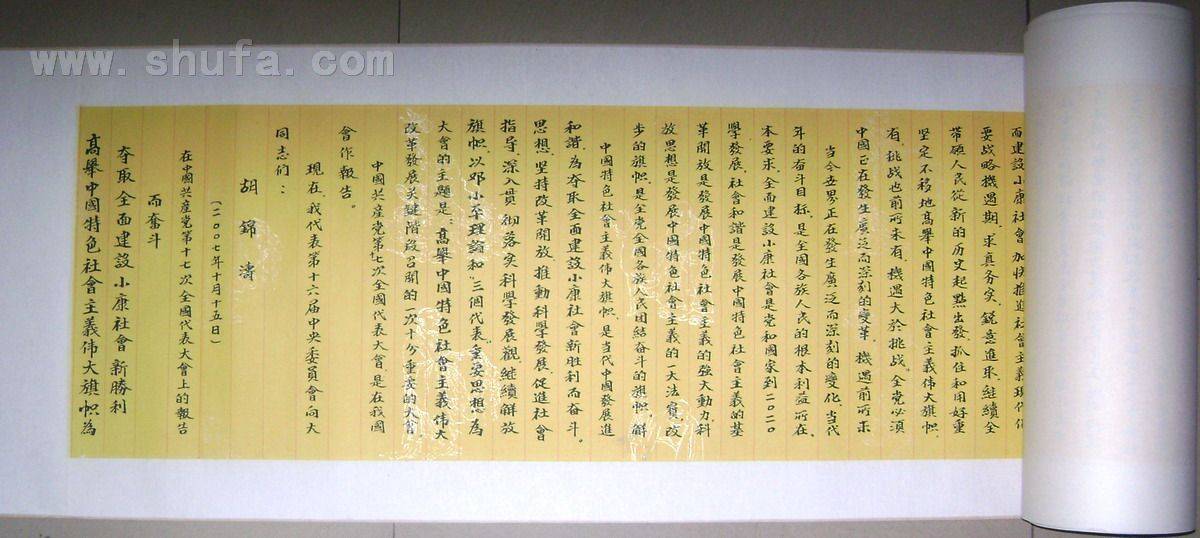 www.shufa.com
高舉中國特色社會主義伟大旗帜为
夺取全面建設小康社會新勝利
而奮斗
在中國共産党第十七次全國代表大會上的報告
(二〇〇七年十月十五日)
胡錦濤
同志们:
現在,我代表第十六届中央委員會向大
會作報告。
中國共産党第十七次全國代表大會,是在我國
改革發展关键階段召開的一次十分重要的大會。
大會的主題是:高舉中國特色社會主義伟大
旗帜,以邓小平理論和“三個代表”重要思想為
指导,深入贯彻落实科學發展觀,继續解放
思想,坚持改革開放,推動科學發展,促進社會
和諧,为夺取全面建設小康社會新胜利而奋斗。
中國特色社會主義伟大旗帜,是当代中國發展進
步的旗帜,是全党全國各族人民团結奋斗的旗帜。解
放思想是發展中國特色社會主義的一大法寶,改
革開放是發展中國特色社會主義的強大動力,科
學發展、社會和谐是發展中國特色社會主義的基
本要求,全面建設小康社會是党和國家到二〇二〇
年的奋斗目标,是全國各族人民的根本利益所在。
当今世界正在發生廣泛而深刻的變化,当代
中國正在發生廣泛而深刻的變革。機遇前所未
有,挑战也前所未有,機遇大於挑战。全党必須
坚定不移地高舉中國特色社會主義伟大旗帜,
带領人民從新的历史起點出發,抓住和用好重
要战略機遇期,求真务实,鋭意進取,继續全
面建設小康社會、加快推進社會主義現代化